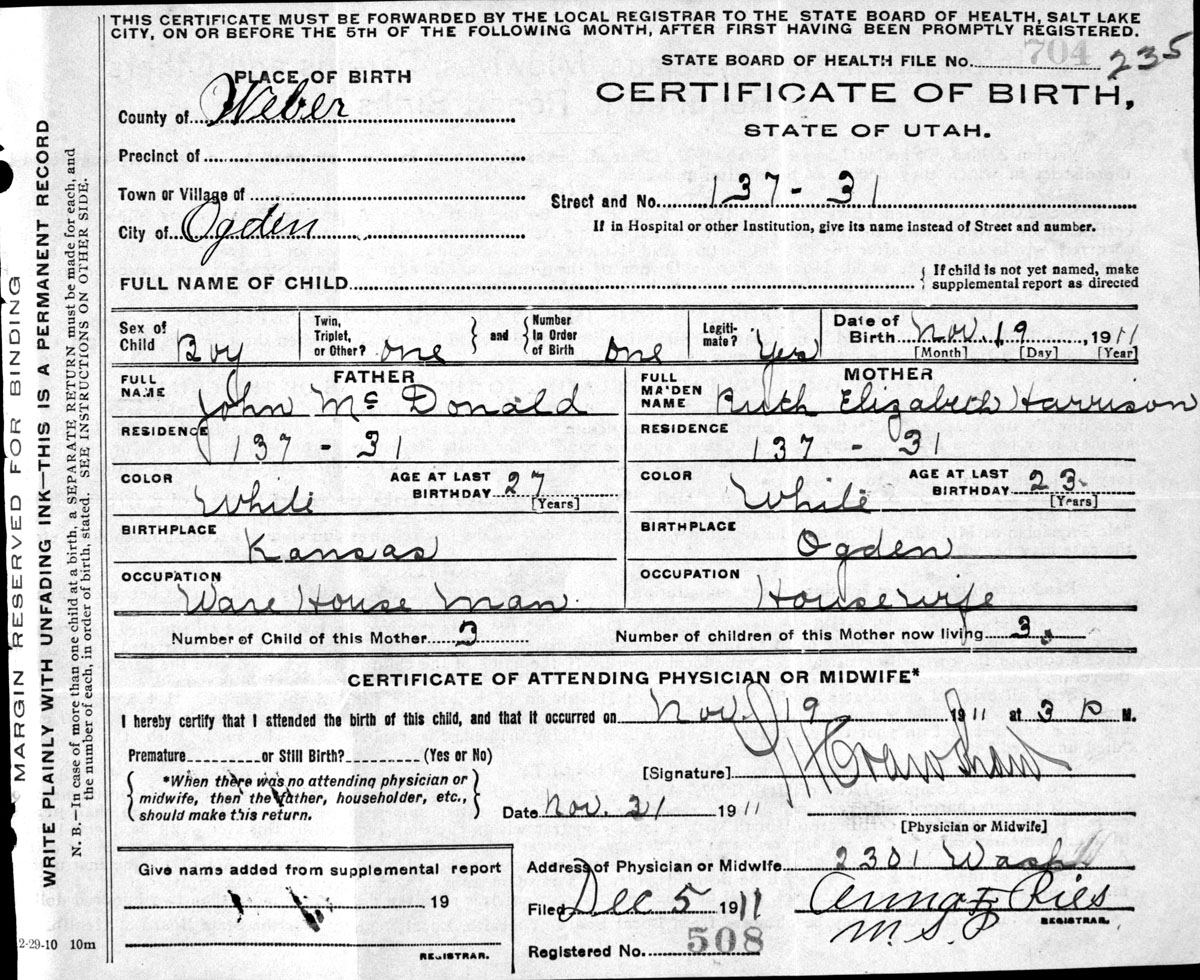 THIS CERTIFICATE MUST BE FORWARDED BY THE LOCAL REGISTRAR TO THE STATE BOARD OF HEALTH, SALT LAKE
CITY, ON OR BEFORE THE 5TH OF THE FOLLOWING MONTH, AFTER FIRST HAVING BEEN PROMPTLY REGISTERED.
STATE BOARD OF HEALTH FILE No. 704 235
PLACE OF BIRTH
CERTIFICATE OF BIRTH,
STATE OF UTAH.
County of Weber
Precinct of
Town or Village of
Street and No. 137 - 31
City of Ogden
If in Hospital or other Institution, give its name instead of Street and number.
FULL NAME OF CHILD
{ If child is not yet named, make
supplemental report as directed
Sex of Child Boy
Twin, Triplet, or Other? one } and { Number In Order of Birth one
Legiti-mate? Yes
Date of Birth Nov. 19, 1911
[Month] [Day] [Year]
FATHER
FULL NAME John Mc Donald
RESIDENCE 137 - 31
COLOR White
AGE AT LAST BIRTHDAY 27
[Years]
BIRTHPLACE Kansas
OCCUPATION Ware House Man.
MOTHER
FULL MAIDEN NAME Ruth Elizabeth Harrison
RESIDENCE 137 - 31
COLOR White
AGE AT LAST BIRTHDAY 23
[Years]
BIRTHPLACE Ogden
OCCUPATION Housewife
Number of Child of this Mother 3
Number of children of this Mother now living 3
CERTIFICATE OF ATTENDING PHYSICIAN OR MIDWIFE*
I hereby certify that I attended the birth of this child, and that it occurred on Nov. 19 1911 at 3 P M.
Premature or Still Birth? (Yes or No)
{ *When there was no attending physician or
midwife, then the father, householder, etc.,
should make this return. }
[Signature] Crawshaw
Date Nov. 21 1911
[Physician or Midwife]
Give name added from supplemental report
19
REGISTRAR.
Address of Physician or Midwife 2301 Wash
Filed Dec 5 1911 Anna F Ries
REGISTRAR.
M.S.P
Registered No. 508
2-29-10 10m
MARGIN RESERVED FOR BINDING
WRITE PLAINLY WITH UNFADING INK—THIS IS A PERMANENT RECORD
N. B.—In case of more than one child at a birth, a SEPARATE RETURN must be made for each, and
the number of each, in order of birth, stated. SEE INSTRUCTIONS ON OTHER SIDE.